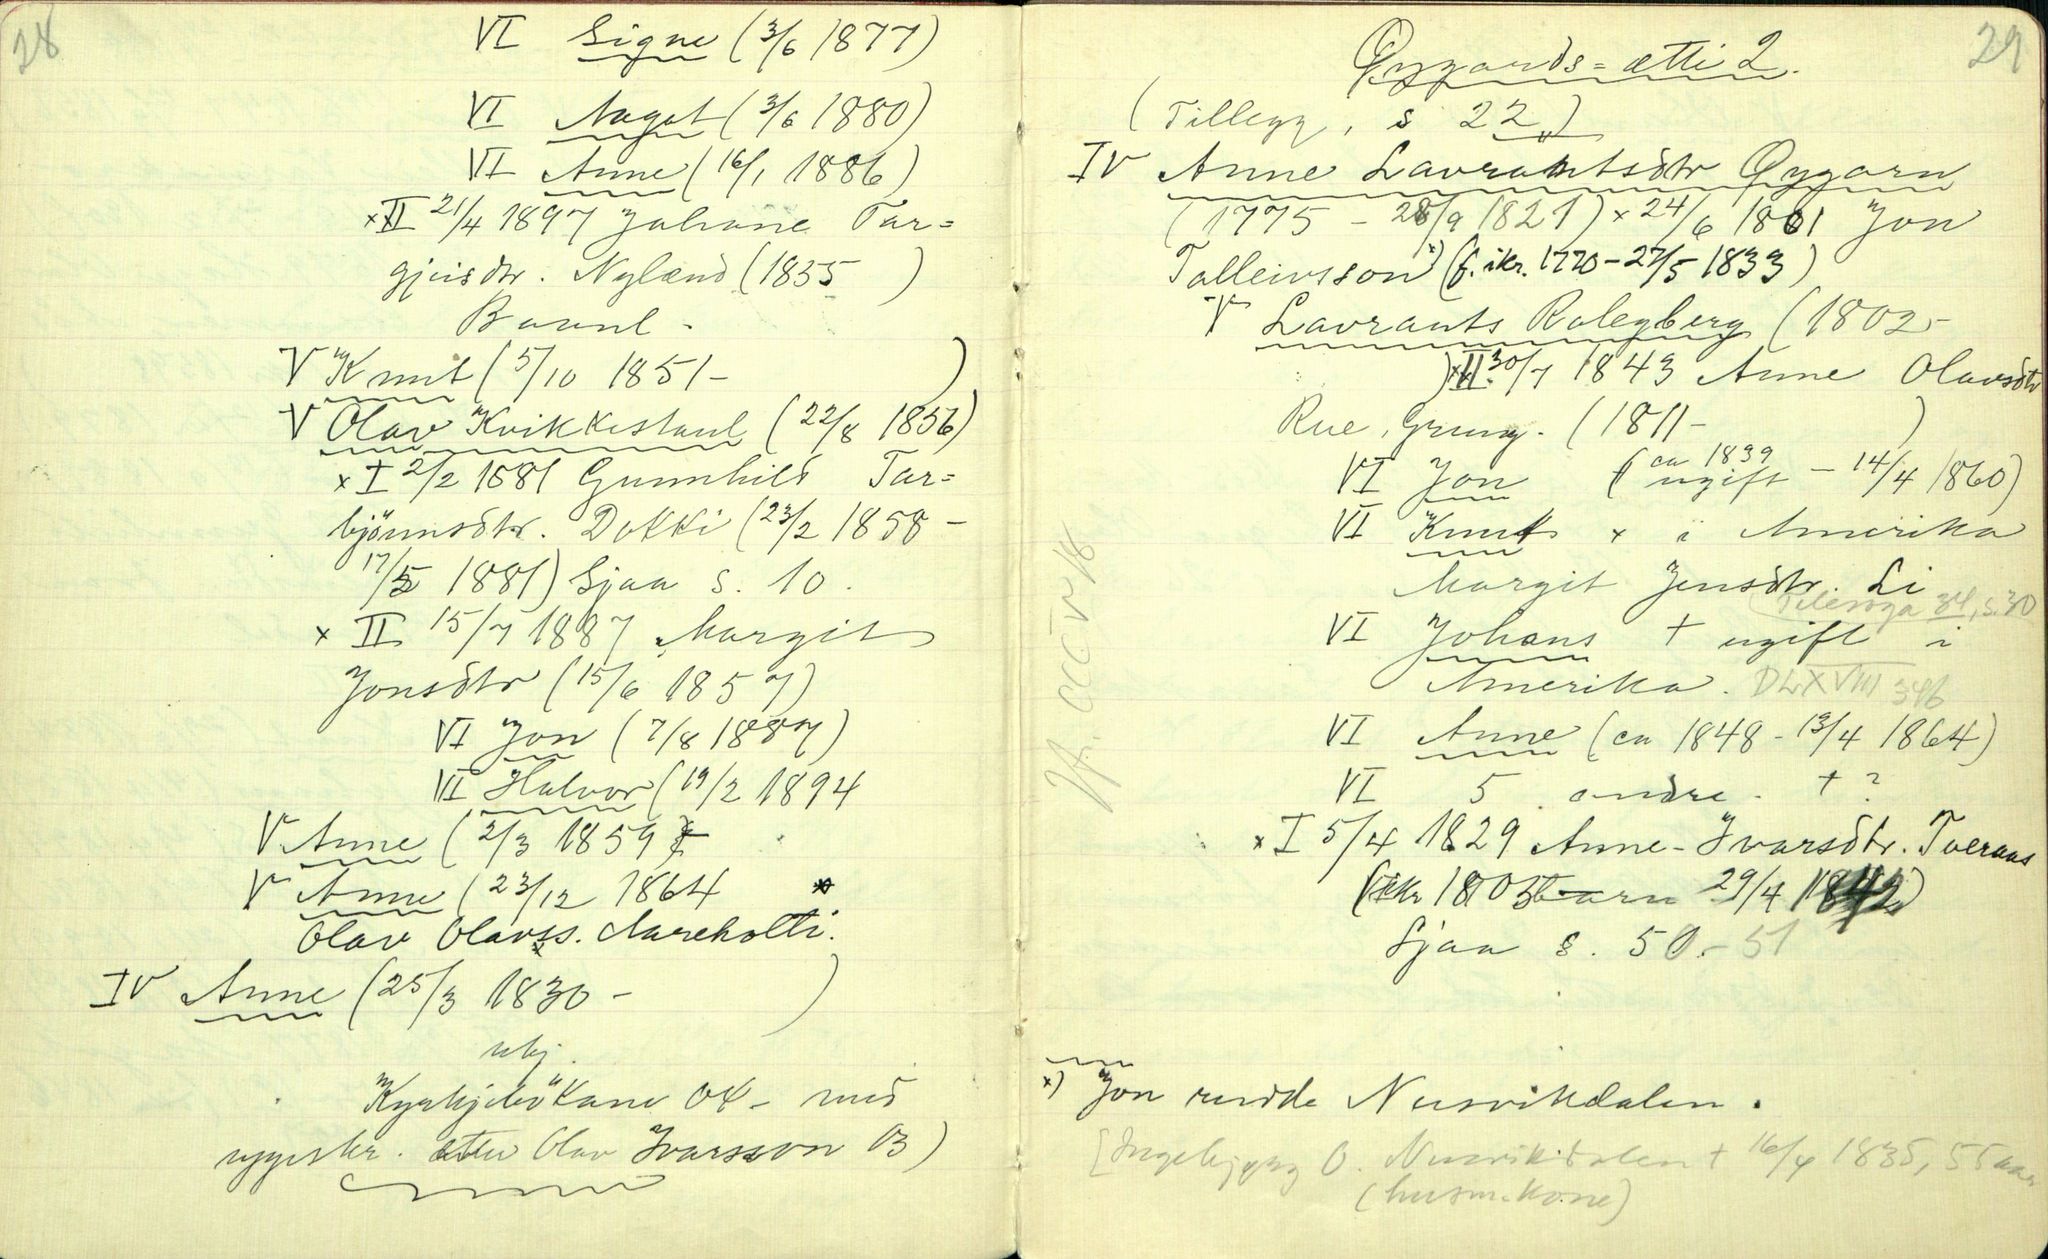 28
VI Signe (3/6 1877)
VI Aagot (3/6 1880)
VI Anne (16/1 1886)
× II 21/4 1897 Johane Tar=
gjeisdtr. Nyland (1835 )
Baanl.
V Knut (5/10 1851 – )
V Olav Kvikkestaul (22/8 1856)
× I 2/2 1881 Gunnhild Tar=
bjönnsdtr. Dokki (23/2 1858 –
17/5 1881) Sjaa s. 10.
× II 15/7 1887 Margit
Jonsdtr (15/6 1857)
VI Jon (7/8 1887)
VI Halvor (19/2 1894
V Anne (2/3 1859
V Anne (23/12 1864 ×
Olav Olavss. Aarekotti.
IV Anne (25/3 1830 – )
Kyrkjebökane OK – med
etter Olav Ivarsson Ö)
29
Øygards=ætti 2.
(Tillegg, s 22)
IV Anne Lavrantsdtr Øygarn
(1775 – 28/9 1821) × 24/6 1801 Jon
Talleivsson ×) (f. ikr. 1770 – 27/5 1833)
V Lavrants Rolegberg (1802 –
) × II 30/7 1843 Anne Olavsdtr
Rue, Grung. (1811 – )
VI Jon (ca 1839 ugift – 14/4 1860)
VI Knut × i Amerika
Margit Jensdtr. Li
34, s. 30
VI Johans + ugift i
Amerika. DLXVIII 346
VI Anne (ca 1848 – 13/4 1864)
VI 5 andre. + ?
× I 5/4 1829 Anne Ivarsdtr. Tveraas
(ikr 1803 29/4 1842)
Sjaa s. 50. – 51
×) Jon rudde Nusvikdalen.
[Ingebjørg O. Nusvikdalen + 16/4 1835, 55 aar
(husm.kone)